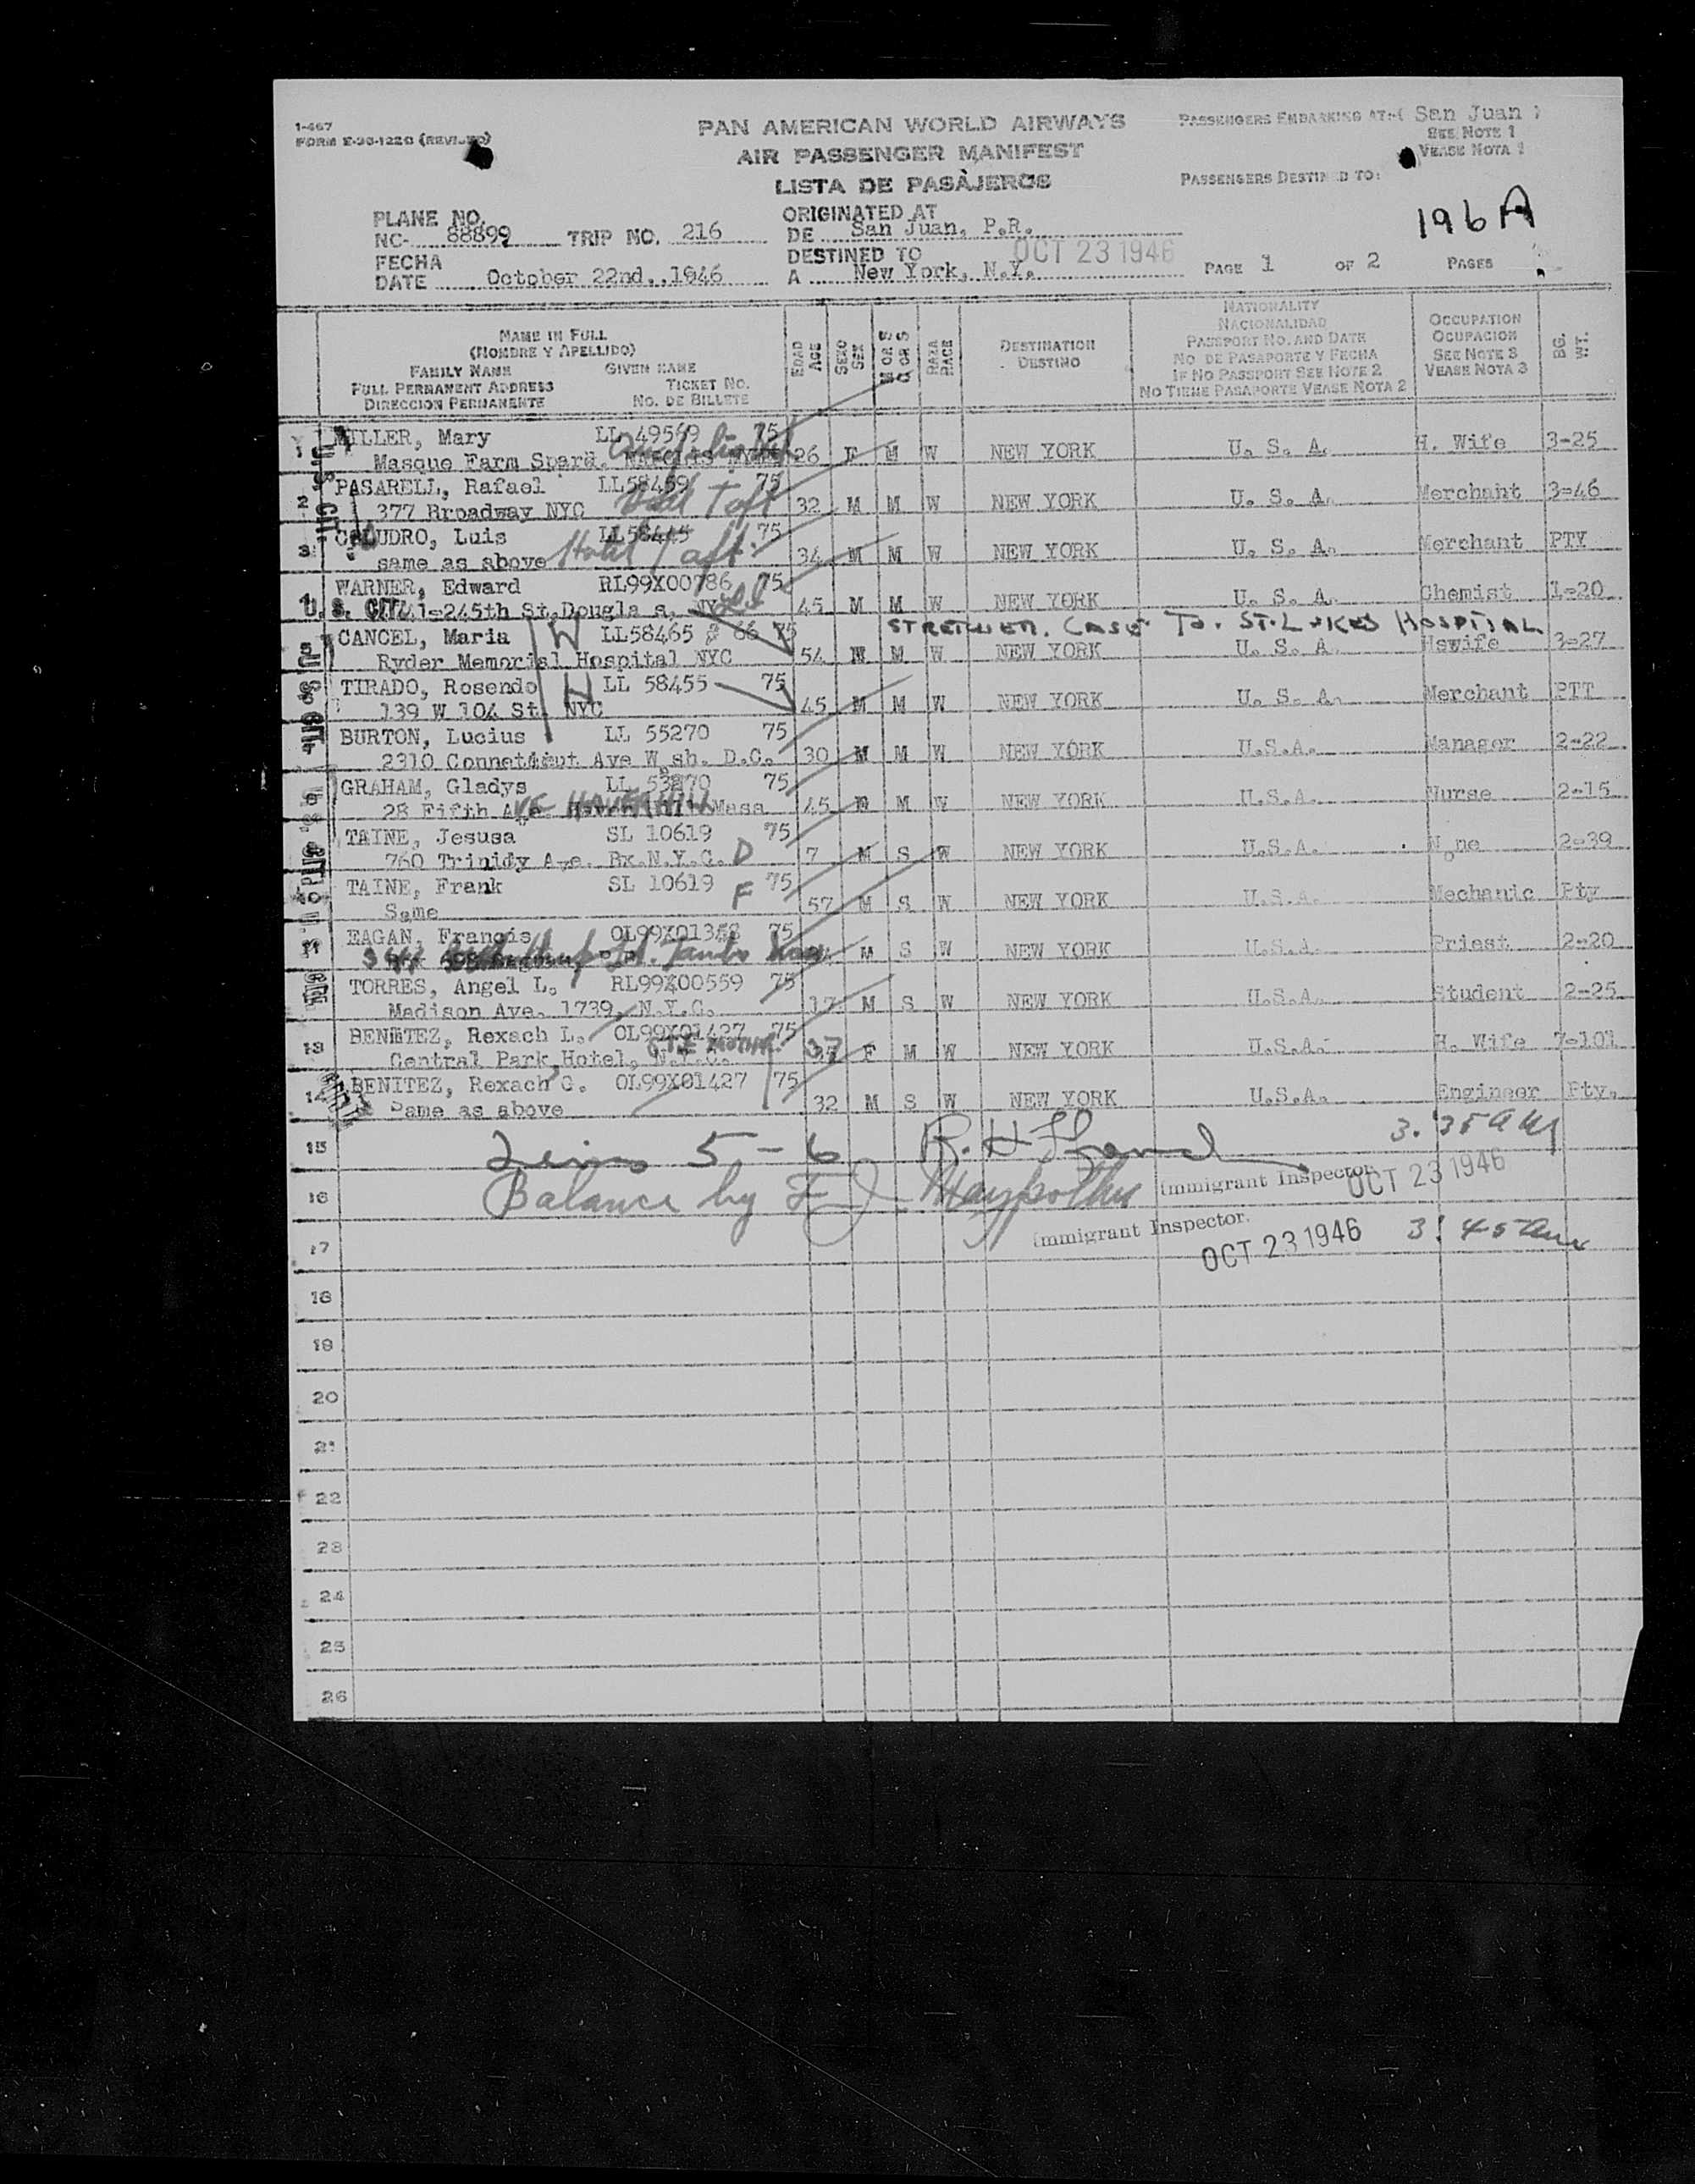 1-467
FORM E-30-122C (REVISED)
PAN AMERICAN WORLD AIRWAYS
AIR PASSENGER MANIFEST
LISTA DE PASAJEROS
PASSENGERS EMBARKING AT:( San Juan )
SEE NOTE 1
VEASE NOTA 1
PASSENGERS DESTINED TO:
196A
PLANE NO.
NC- 88899 TRIP NO. 216
ORIGINATED AT
DE San Juan, P.R.
FECHA
DATE October 22nd.,1946
DESTINED TO
A New York, N.Y.
OCT 23 1946
PAGE 1 OF 2 PAGES
NAME IN FULL
(NOMBRE Y APELLIDO)
FAMILY NAME GIVEN NAME
FULL PERMANENT ADDRESS TICKET NO.
DIRECCION PERMANENTE NO. DE BILLETE
EDAD AGE
SEXO SEX
M OR S
C OR S
RAZA RACE
DESTINATION
DESTINO
NATIONALITY
NACIONALIDAD
PASSPORT NO. AND DATE
NO. DE PASAPORTE Y FECHA
IF NO PASSPORT SEE NOTE 2
NO TIENE PASAPORTE VEASE NOTA 2
OCCUPATION
OCUPACION
SEE NOTE 3
VEASE NOTA 3
BG. WT.
1 MILLER, Mary LL 49569 75
Masque Farm 26 F M W NEW YORK U. S. A. H. Wife 3-25
2 PASARELL, Rafael LL58459 75
377 Broadway NYC Hotel Taft 32 M M W NEW YORK U. S. A. Merchant 3-46
3 LUDRO, Luis LL58445 75
same as above Hotel Taft 34 M M W NEW YORK U. S. A. Merchant PTY
4 WARNER, Edward RL99X00786 75
U. S. CIT. 41-245th St.Dougla s, NY 45 M M W NEW YORK U. S. A. Chemist 1-20
STRETCHER. CASE TO. ST. LUKES HOSPITAL
5 CANCEL, Maria LL58465 & 66 75
Ryder Memorial Hospital NYC 54 M W NEW YORK U. S. A. Hswife 3-27
6 TIRADO, Rosendo LL 58455 75
139 W 104 St. NYC 45 M M W NEW YORK U. S. A. Merchant PTT
BURTON, Lucius LL 55270 75
2310 Ave Wash. D.C. 30 M M W NEW YORK U.S.A. Manager 2-22
GRAHAM, Gladys LL 53870 75
28 Fifth Ave. HAVERHILL Mass 45 M W NEW YORK U.S.A. Nurse 2-15
TAINE, Jesusa SL 10619 75
760 Trinidy Ave. Bx.N.Y.C. D 7 M S W NEW YORK U.S.A. None 2-39
TAINE, Frank SL 10619 F 75
Same 57 M S W NEW YORK U.S.A. Mechanic Pty
11 EAGAN, Francis OL99X01358 75
M S W NEW YORK U.S.A. Priest 2-20
TORRES, Angel L. RL99X00559 75
Madison Ave. 1739, N.Y.C. 17 M S W NEW YORK U.S.A. Student 2-25
13 BENITEZ, Rexach L. OL99X01427 75
Central Park Hotel, N.Y.C. 37 F M W NEW YORK U.S.A. H. Wife 7-101
14 BENITEZ, Rexach C. OL99X01427 75
Same as above 32 M S W NEW YORK U.S.A. Engineer Pty.
15 Lines 5-6 R. H. 3:35 AM
Immigrant Inspector
OCT 23 1946
16 Balance by F J
Immigrant Inspector.
17 OCT 23 1946 3:45 am
18
19
20
21
22
23
24
25
26